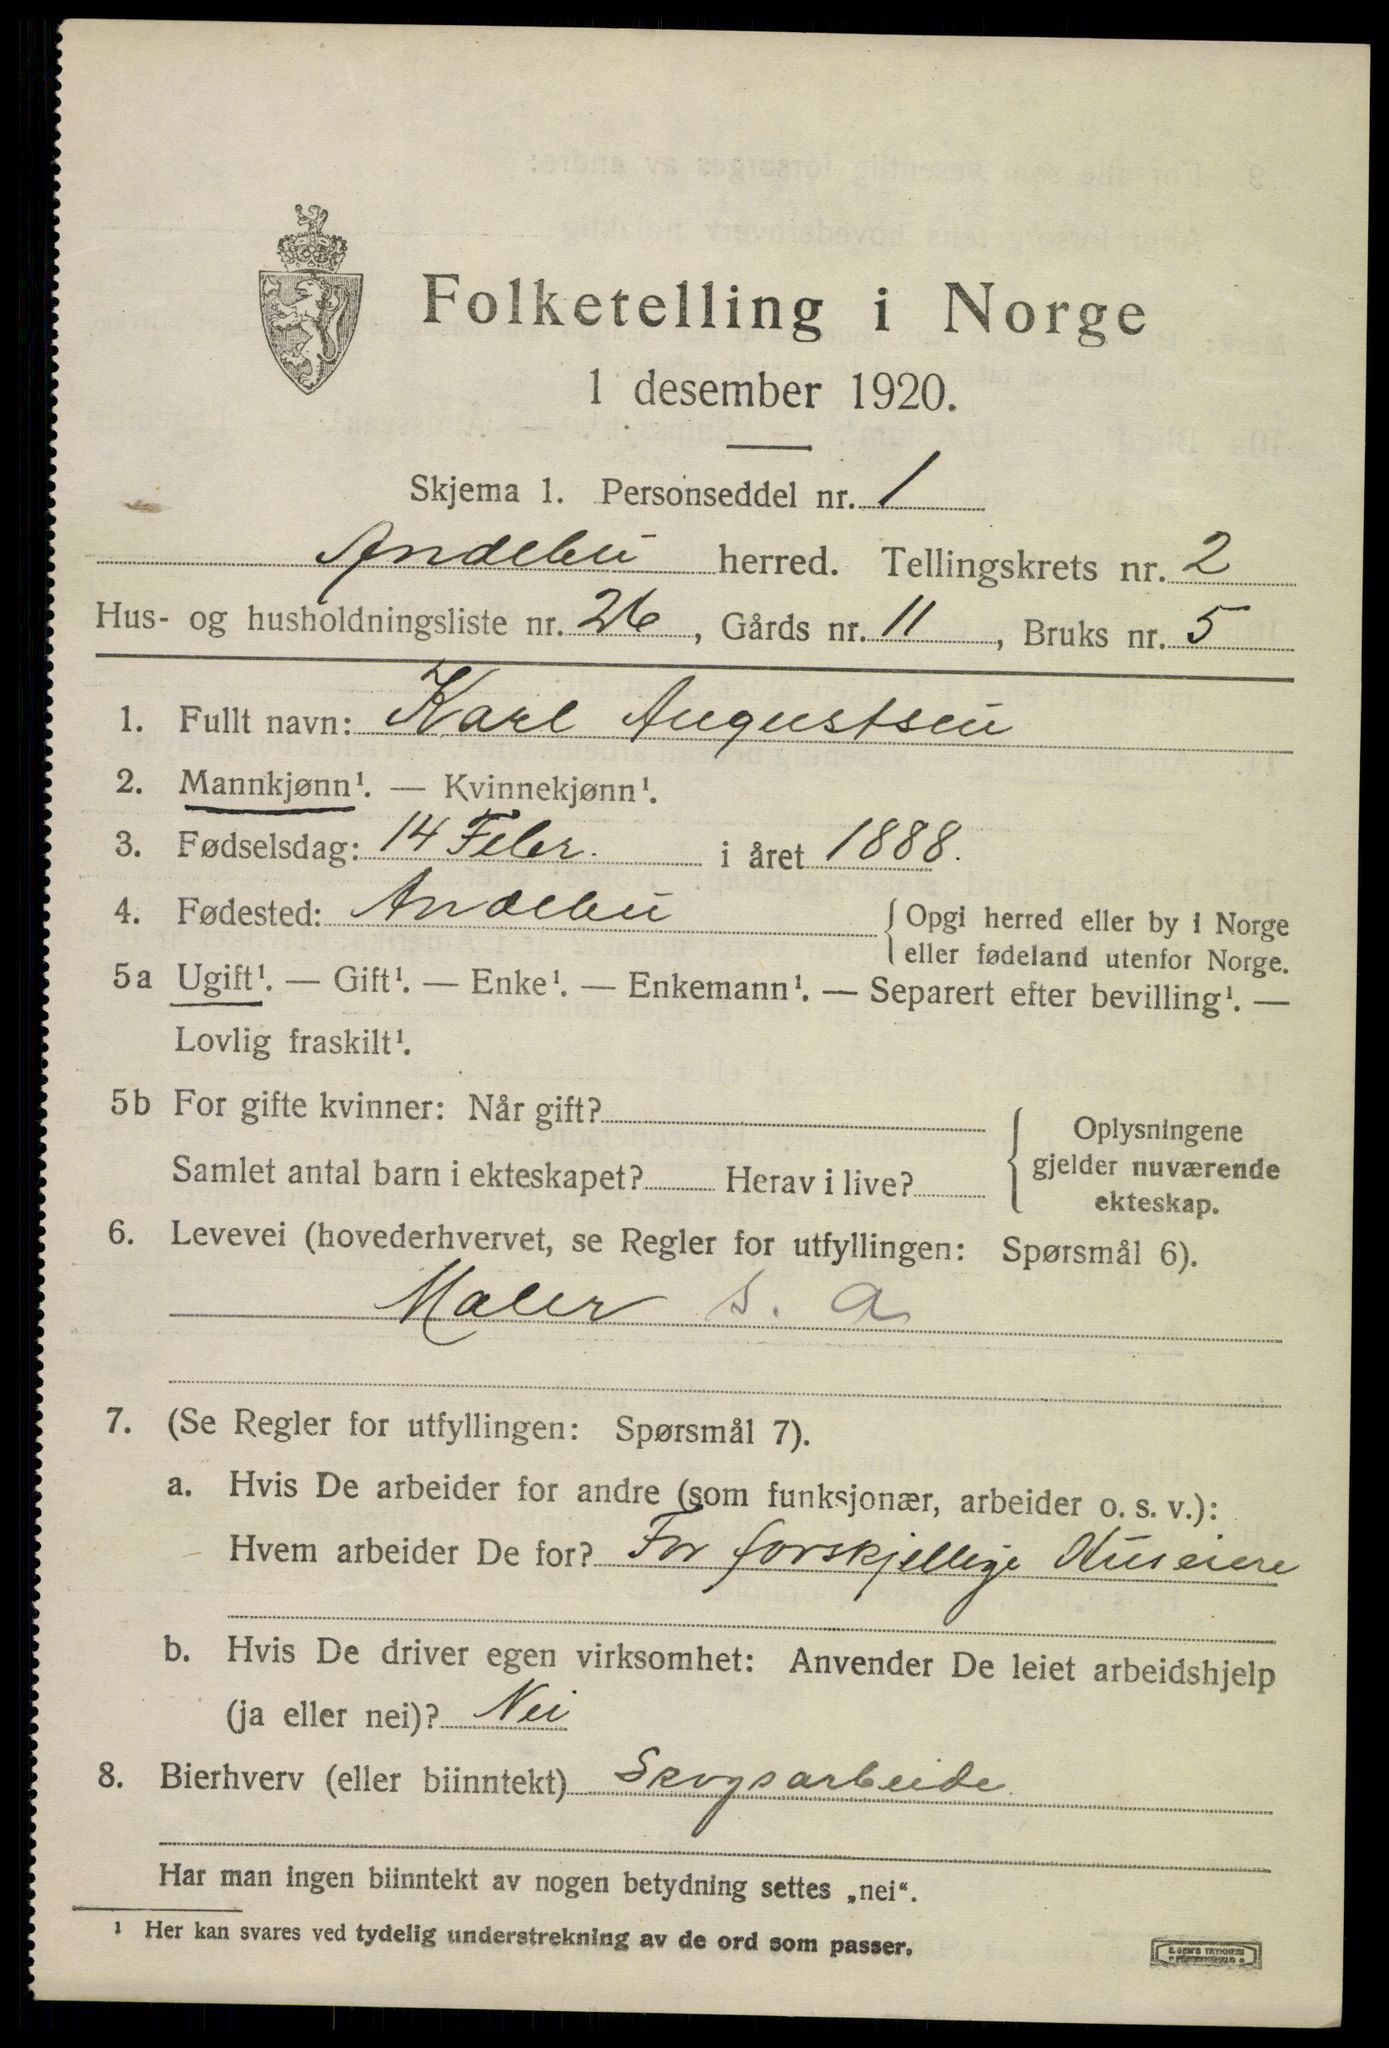 Folketelling i Norge
1 desember 1920.
Skjema 1. Personseddel nr. 1
Andebu herred. Tellingskrets nr. 2
Hus- og husholdningsliste nr. 26, Gårds nr. 11, Bruks nr. 5
1. Fullt navn: Karl Augustsen
2. Mannkjønn¹. — Kvinnekjønn¹.
3. Fødselsdag: 14 Febr. i året 1888.
4. Fødested: Andebu
{ Opgi herred eller by i Norge
eller fødeland utenfor Norge.
5a Ugift¹. — Gift¹. — Enke¹. — Enkemann¹. — Separert efter bevilling¹. —
Lovlig fraskilt¹.
5b For gifte kvinner: Når gift?
Samlet antal barn i ekteskapet? Herav i live?
{ Oplysningene
gjelder nuværende
ekteskap.
6. Levevei (hovederhvervet, se Regler for utfyllingen: Spørsmål 6).
Maler s. a
7. (Se Regler for utfyllingen: Spørsmål 7).
a. Hvis De arbeider for andre (som funksjonær, arbeider o. s. v.):
Hvem arbeider De for? For forskjellige Huseiere
b. Hvis De driver egen virksomhet: Anvender De leiet arbeidshjelp
(ja eller nei)? Nei
8. Bierhverv (eller biinntekt) Skogsarbeide
Har man ingen biinntekt av nogen betydning settes „nei“.
¹ Her kan svares ved tydelig understrekning av de ord som passer.